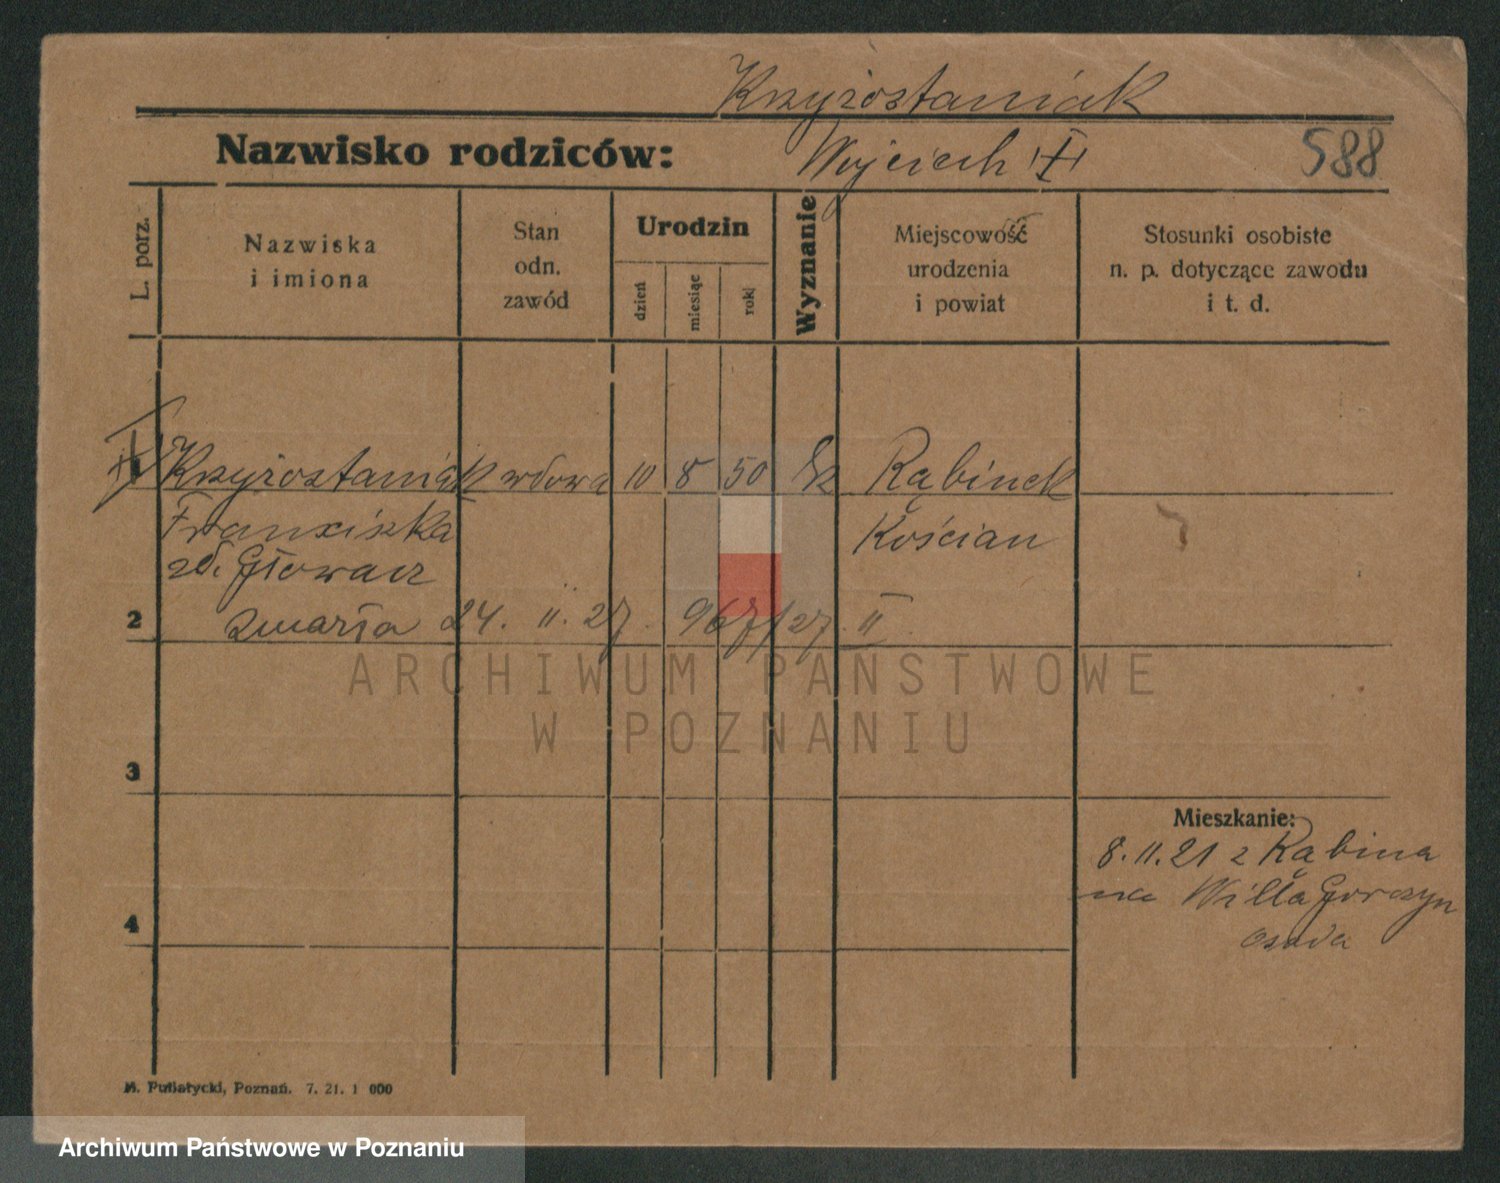 Krzyżostaniak
Nazwisko rodziców: Wojciech
588
L. porz.
Nazwiska
i imiona
Stan
odn.
zawód
Urodzin
dzień
miesiąc
rok
Wyznanie
Miejscowość
urodzenia
i powiat
Stosunki osobiste
n. p. dotyczące zawodu
i t. d.
Krzyżostaniak wdowa 10 8 50 Rąbinek
Franciszka Kościan
zd. Głowacz
2 zmarła 24. II. 27. 967/27 II.
ARCHIWUM PAŃSTWOWE
W POZNANIU
3
Mieszkanie:
8.11.21 z Rąbina
na Willa Gorczyn
osada
4
M. Putiatycki, Poznań. 7. 21. 1 000
Archiwum Państwowe w Poznaniu